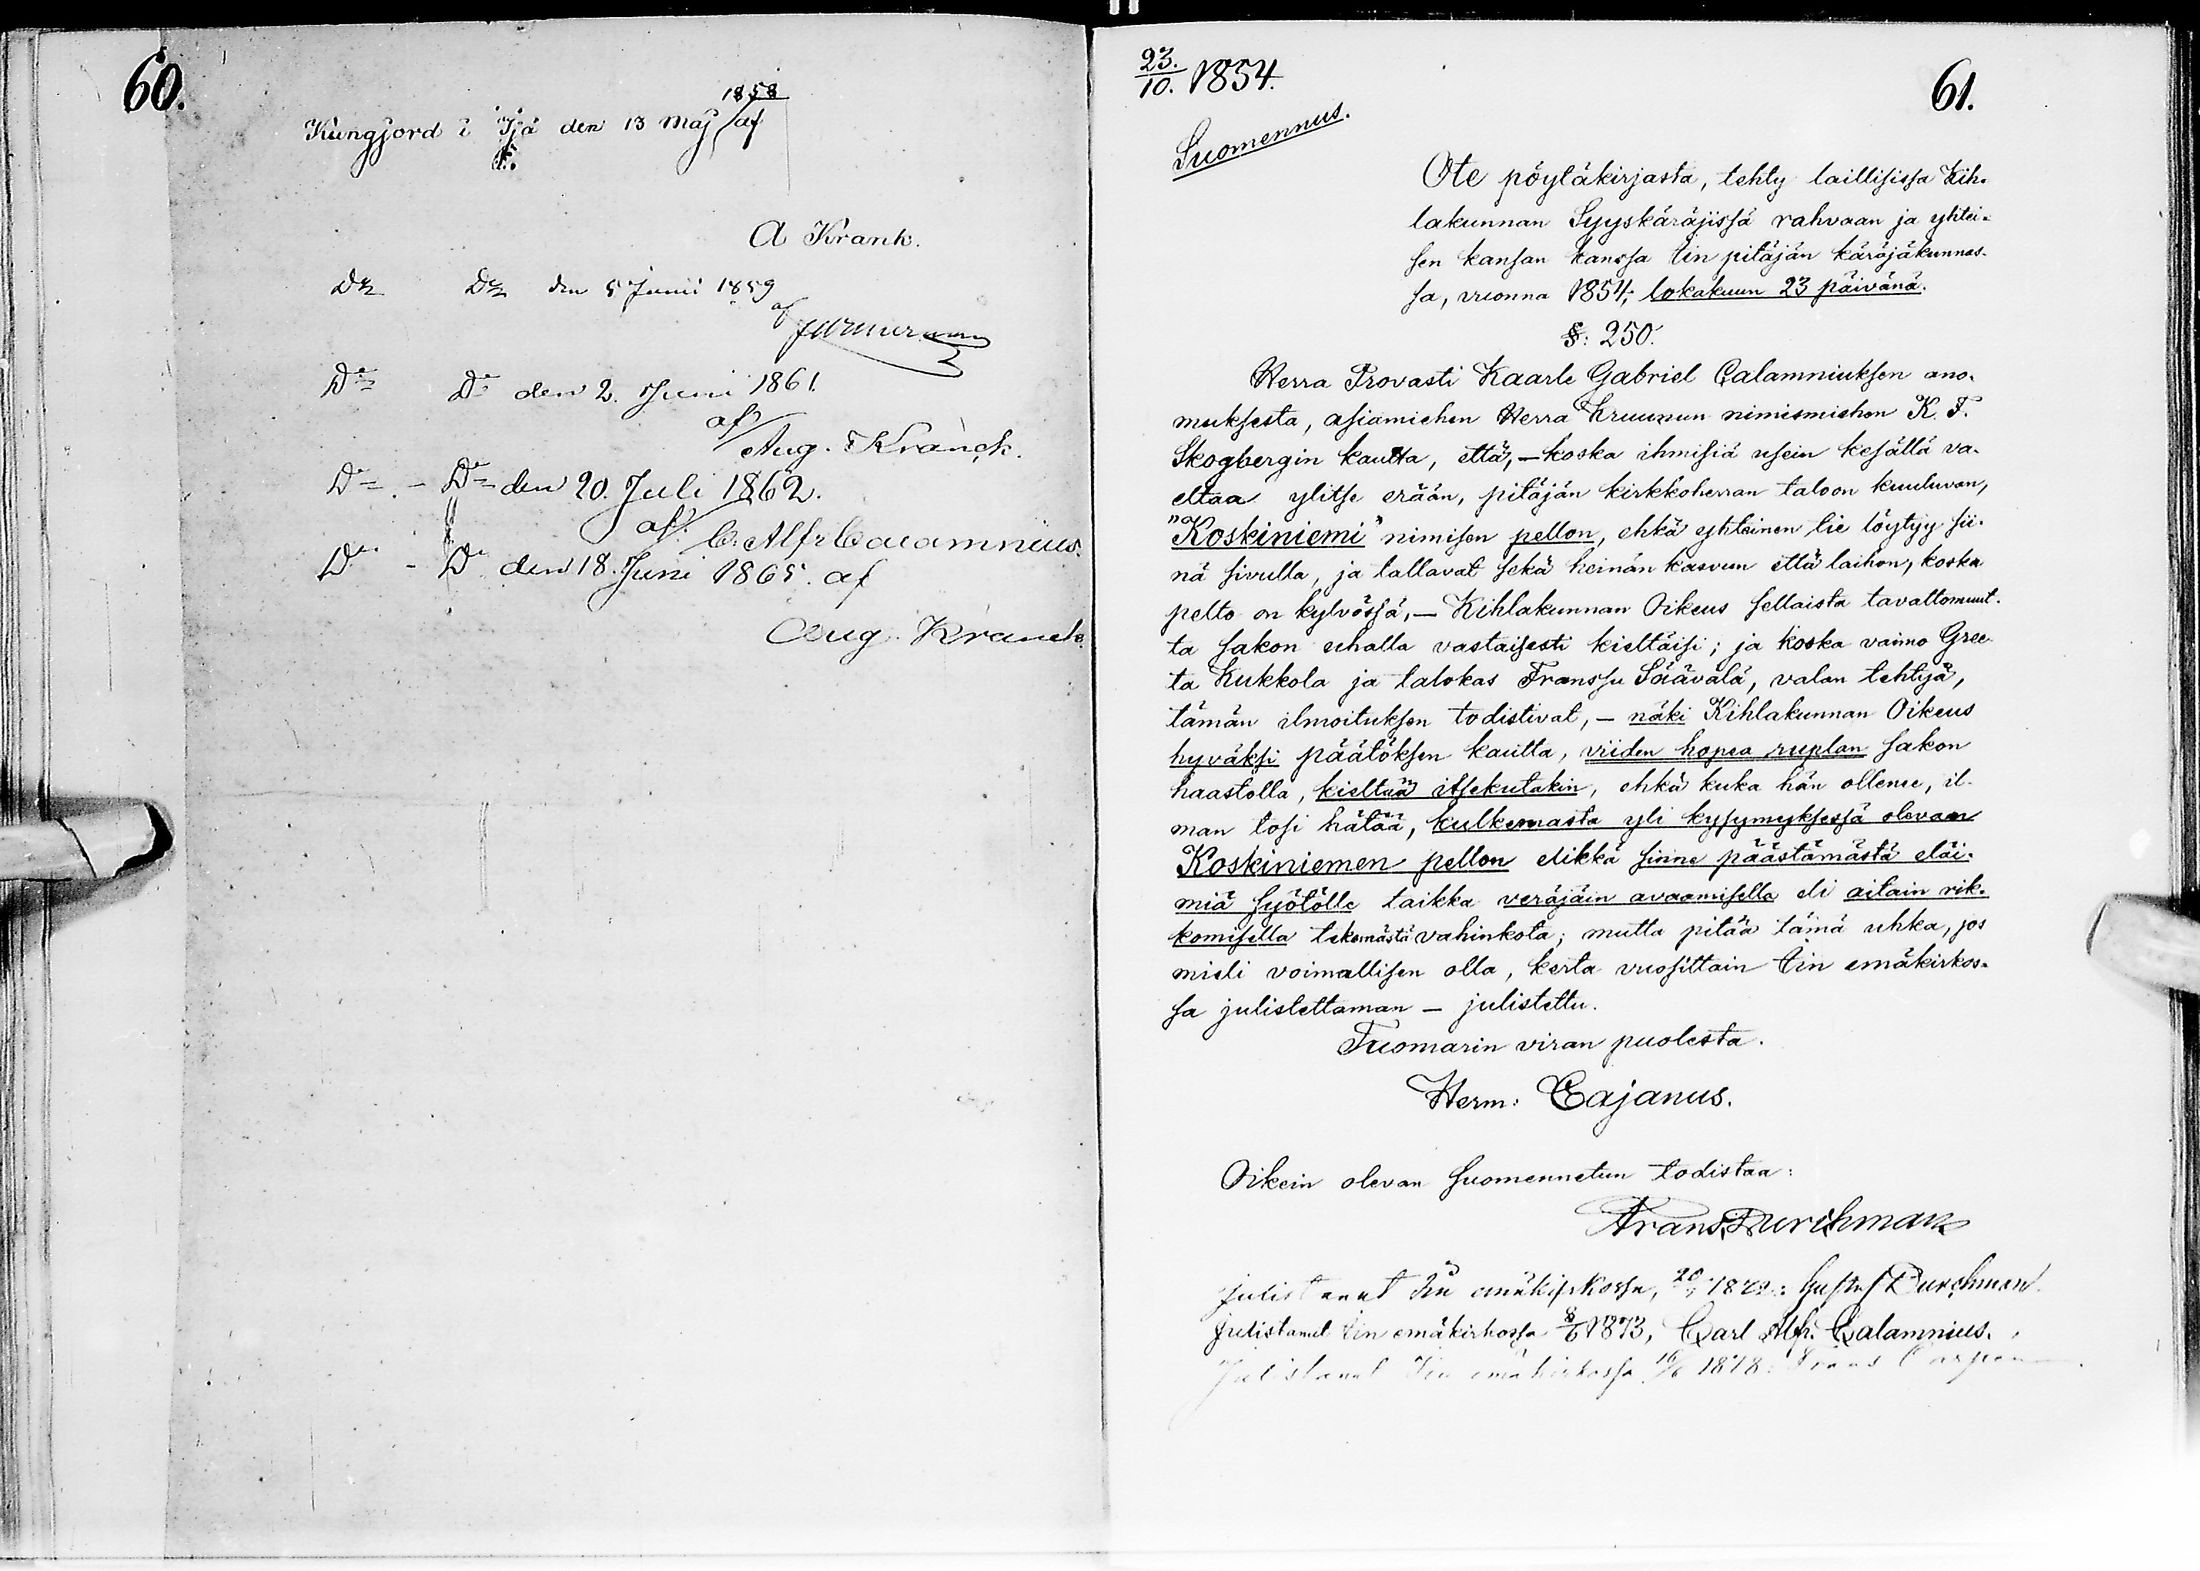 60.
1858
Kungjord i Ijå den 13 Maj af
A Krank.
Do Do den 5 Junii 1859
af
Do Do den 2. Juni 1861.
af
Aug. Kranck.
Do - Do den 20. Juli 1862.
af. C. Alfr Calamnius.
Do - Do den 18. Juni 1865. af
Aug. Kranck.
23./10. 1854.
61.
Suomennus.
Ote pöytäkirjasta, tehty laillisissa Kih-
lakunnan Syyskäräjissä rahvaan ja yhtei-
sen kansan kanssa Iin pitäjän käräjäkunnas-
sa, vuonna 1854, lokakuun 23 päivänä.
§: 250.
Herra Provasti Kaarle Gabriel Calamniuksen ano-
muksesta, asiamiehen Herra Kruunun nimismiehen K. F.
Skogbergin kautta, että, — koska ihmisiä usein kesällä va-
eltaa ylitse erään, pitäjän kirkkoherran taloon kuuluvan,
"Koskiniemi" nimisen pellon, ehkä yhteinen tie löytyy sii-
nä sivulla, ja tallavat sekä heinän kasvun että laihon, koska
pelto on kylvössä, — Kihlakunnan Oikeus sellaista tavattomuut-
ta sakon uhalla vastaisesti kieltäisi; ja koska vaimo Gree-
ta Kukkola ja talokas Franssu Säävälä, valan tehtyä,
tämän ilmoituksen todistivat, — näki Kihlakunnan Oikeus
hyväksi päätöksen kautta, viiden hopea ruplan sakon
haastolla, kieltää itsekutakin, ehkä kuka hän ollenee, il-
man tosi hätää, kulkemasta yli kysymyksessä olevan
Koskiniemen pellon elikkä sinne päästämästä eläi-
miä syötölle taikka veräjäin avaamisella eli aitain rik-
komisella tekemästä vahinkota; mutta pitää tämä uhka, jos
mieli voimallisen olla, kerta vuosittain Iin emäkirkos-
sa julistettaman — julistettu.
Tuomarin viran puolesta.
Herm: Cajanus.
Oikein olevan suomennetun todistaa:
Frans Durchman
Julistanut Iin emäkirkossa, Gustaf Durchman.
Julistanut Iin emäkirkossa 8/6 1873, Carl Alfr. Calamnius.
Julistanut Iin emäkirkossa 16/6 1878. Frans